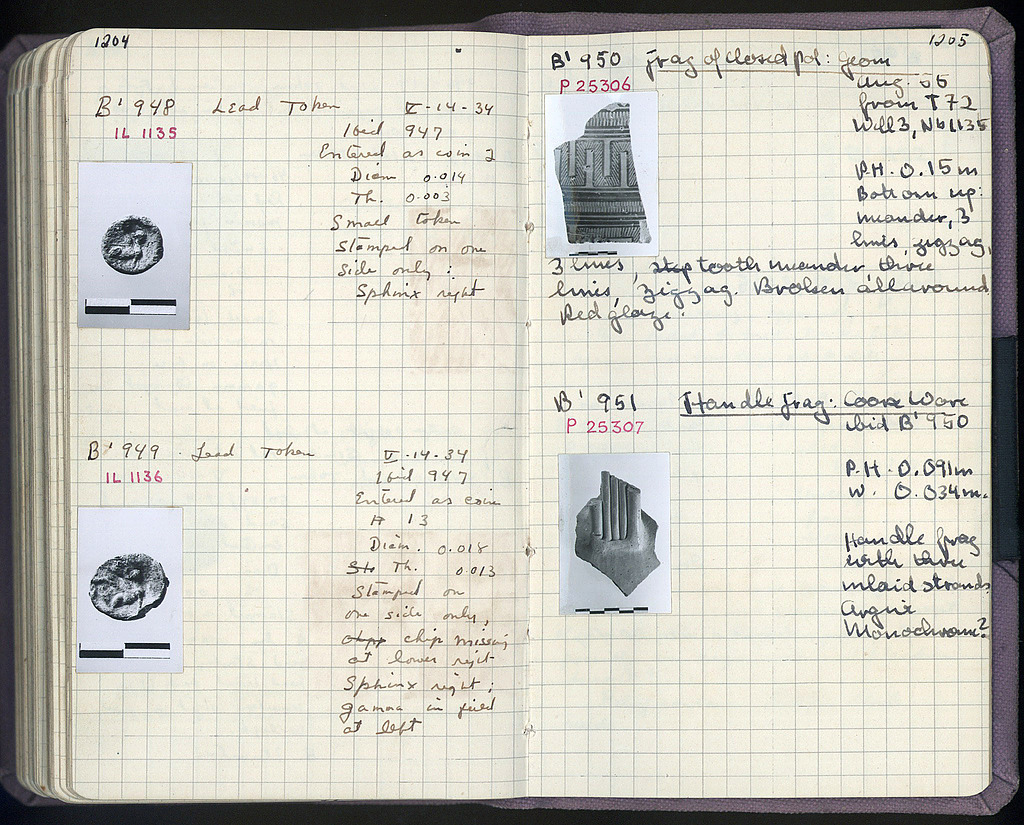 1204
B' 948 Lead Token V-14-34
IL 1135
Ibid 947
Entered as coin 2
Diam 0.014
Th. 0.003
Small token
Stamped on one
side only:
Sphinx right
B' 949. Lead Token V-14-34
IL 1136
Ibid 947
Entered as coin
# 13
Diam. 0.018
Th. 0.013
Stamped on
one side only,
chip missing
at lower right
Sphinx right;
gamma in field
at left
1205
B' 950 Frag of closed pot: Geom
P 25306
Aug. 55
from T 72
Well 3, Nb 1135
P.H. 0.15 m
Bottom up:
meander, 3
lines zigzag,
3 lines, step tooth meander three
lines, zigzag. Broken all around
Red glaze.
B' 951 Handle frag: Coarse Ware
P 25307
ibid B' 950
P.H. 0.091m
W. 0.034m.
Handle frag
with three
inlaid strands.
Argive
Monochrome?